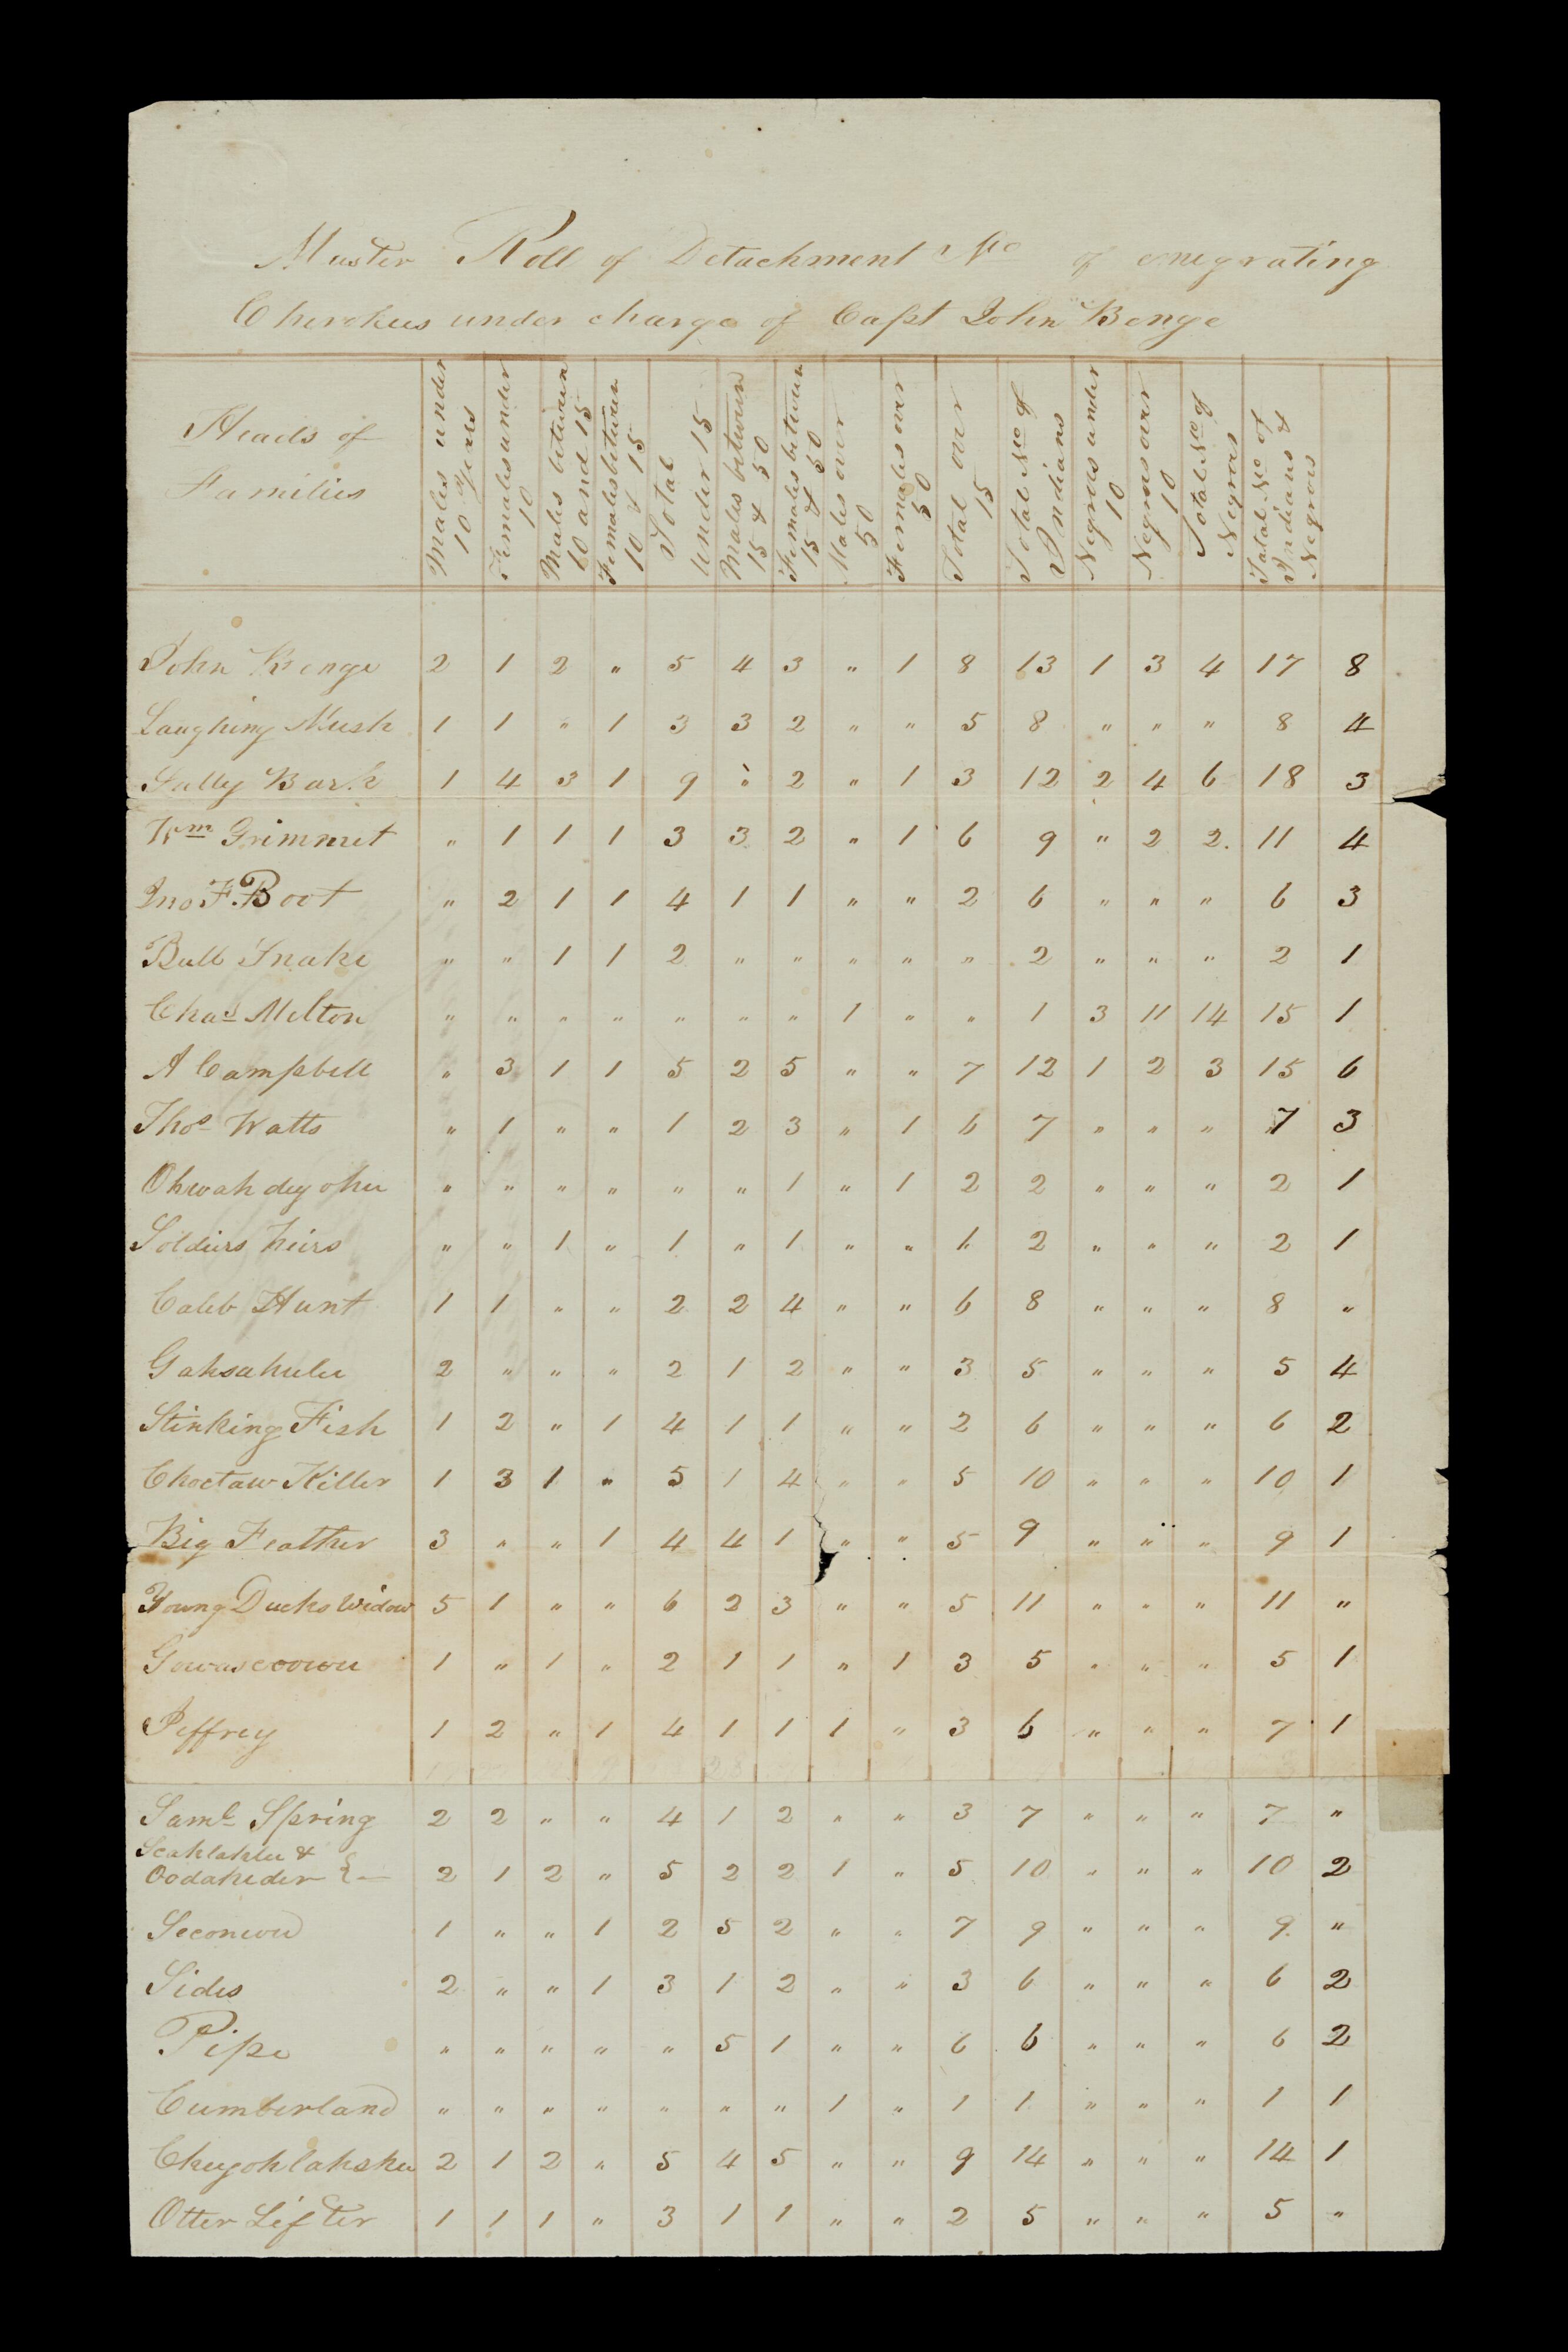 Muster Roll of Detachment No of emegrating
Cherokees under charge of Capt John Benge
Heads of Families
Males under 10 Years
Females under 10
Males between 10 and 15
Females between 10 & 15
Total under 15
Males between 15 & 50
Females between 15 & 50
Males over 50
Females over 50
Total over 15
Total No of Indians
Negroes under 10
Negroes over 10
Total No of Negroes
Total No of Indians & Negroes
John Benge 2 1 2 " 5 4 3 " 1 8 13 1 3 4 17 8
Laughing Mush 1 1 " 1 3 3 2 " " 5 8 " " " 8 4
Sally Bark 1 4 3 1 9 " 2 " 1 3 12 2 4 6 18 3
Wm Grimmet " 1 1 1 3 3 2 " 1 6 9 " 2 2. 11 4
Jno F. Boot " 2 1 1 4 1 1 " " 2 6 " " " 6 3
Bull Snake " " 1 1 2 " " " " " 2 " " " 2 1
Chas Melton " " " " " " " 1 " " 1 3 11 14 15 1
A Campbell " 3 1 1 5 2 5 " " 7 12 1 2 3 15 6
Thos Watts " 1 " " 1 2 3 " 1 6 7 " " " 7 3
Ohwah dey ohee " " " " " " 1 " 1 2 2 " " " 2 1
Soldiers heirs " " 1 " 1 " 1 " " 1 2 " " " 2 1
Caleb Hunt 1 1 " " 2 2 4 " " 6 8 " " " 8 "
Gahsahulee 2 " " " 2 1 2 " " 3 5 " " " 5 4
Stinking Fish 1 2 " 1 4 1 1 " " 2 6 " " " 6 2
Choctaw Killer 1 3 1 " 5 1 4 " " 5 10 " " " 10 1
Big Feather 3 " " 1 4 4 1 " " 5 9 " " " 9 1
Young Ducks Widow 5 1 " " 6 2 3 " " 5 11 " " " 11 "
1 " 1 " 2 1 1 " 1 3 5 " " " 5 1
Jeffrey 1 2 " 1 4 1 1 1 " 3 6 " " " 7 1
Saml Spring 2 2 " " 4 1 2 " " 3 7 " " " 7 "
Scahlahlee &
Oodaheder 2 1 2 " 5 2 2 1 " 5 10 " " " 10 2
Seconwee 1 " " 1 2 5 2 " " 7 9 " " " 9 "
Sides 2 " " 1 3 1 2 " " 3 6 " " " 6 2
Pipe " " " " " 5 1 " " 6 6 " " " 6 2
Cumberland " " " " " " " 1 " 1 1 " " " 1 1
Chugohlahskee 2 1 2 " 5 4 5 " " 9 14 " " " 14 1
Otter Lifter 1 1 1 " 3 1 1 " " 2 5 " " " 5 "